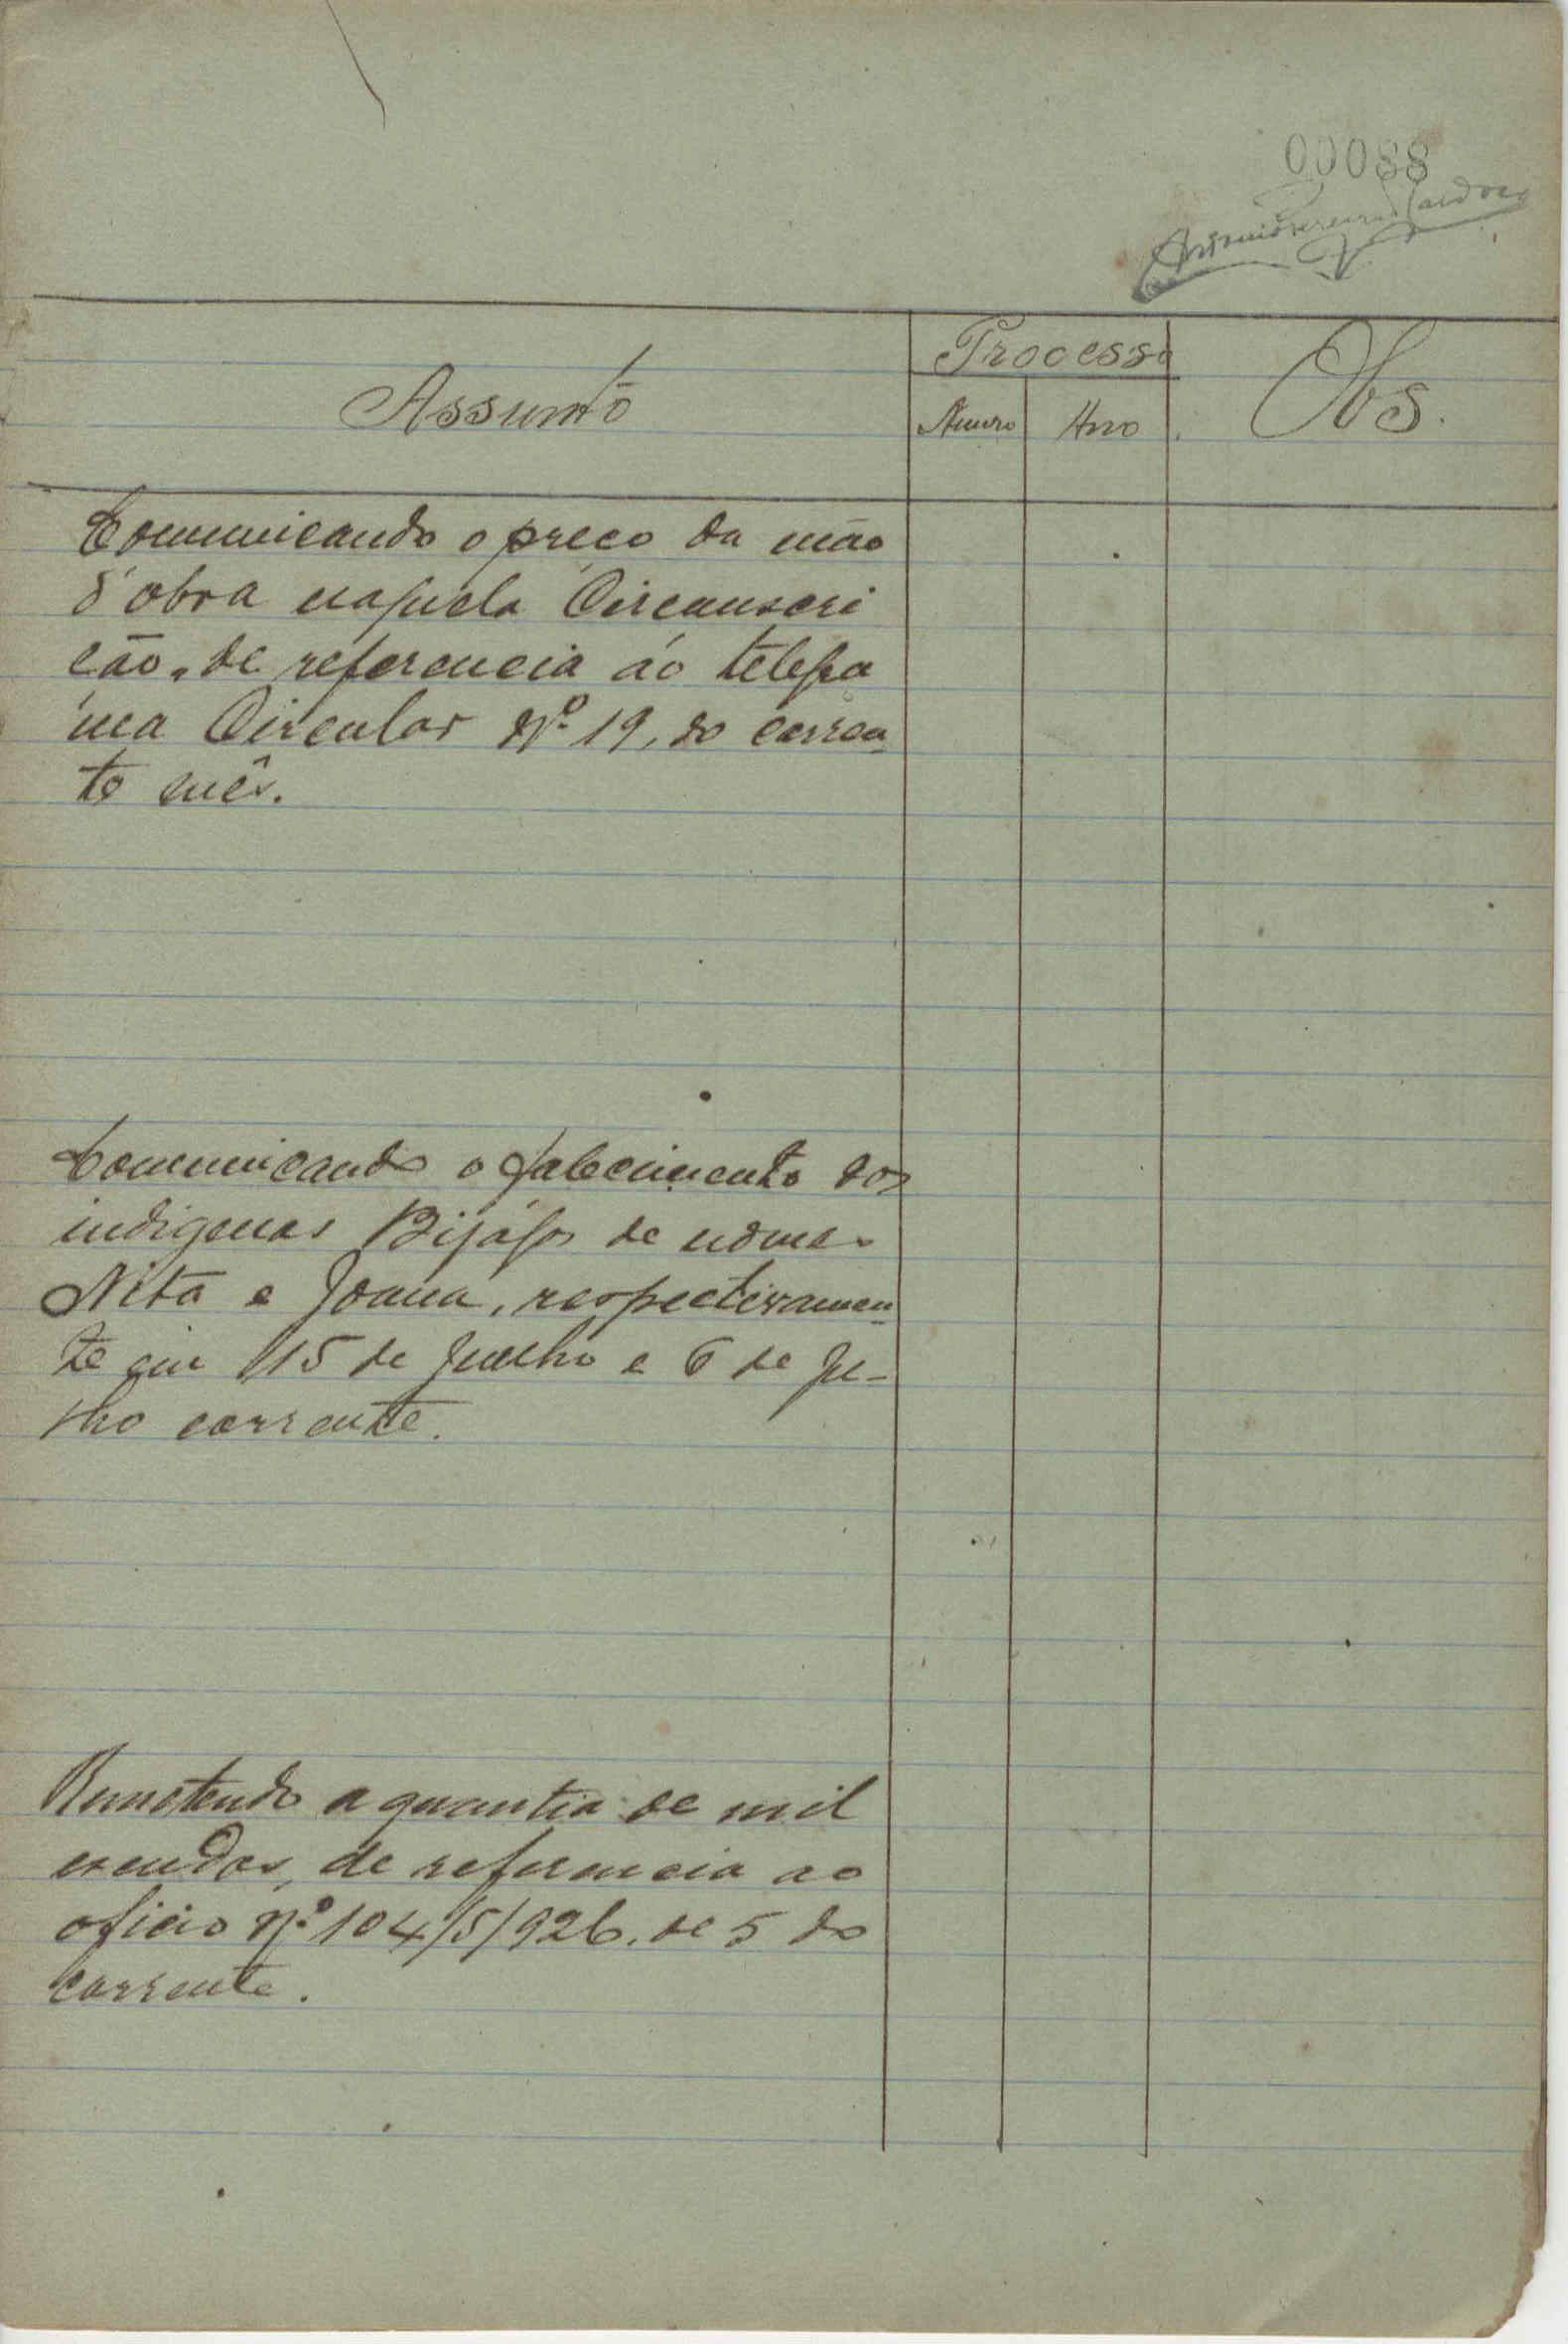 00088
Assunto
Processo
Obs.
Numero
Ano
Communicando o preço da mão
d'obra naquela Circunscri
cão, de referencia áo telegra
ma Circular Nº 19, do corren
te mês.
Communicando o falecimento dos
indigenas Bijágos de nomes
Nita e Joana, respectivamen
te em 15 de Junho e 6 de Ju-
lho corrente.
Remetendo a quantia de mil
escudos, de referencia ao
oficio Nº 104/5/926, de 5 do
corrente.